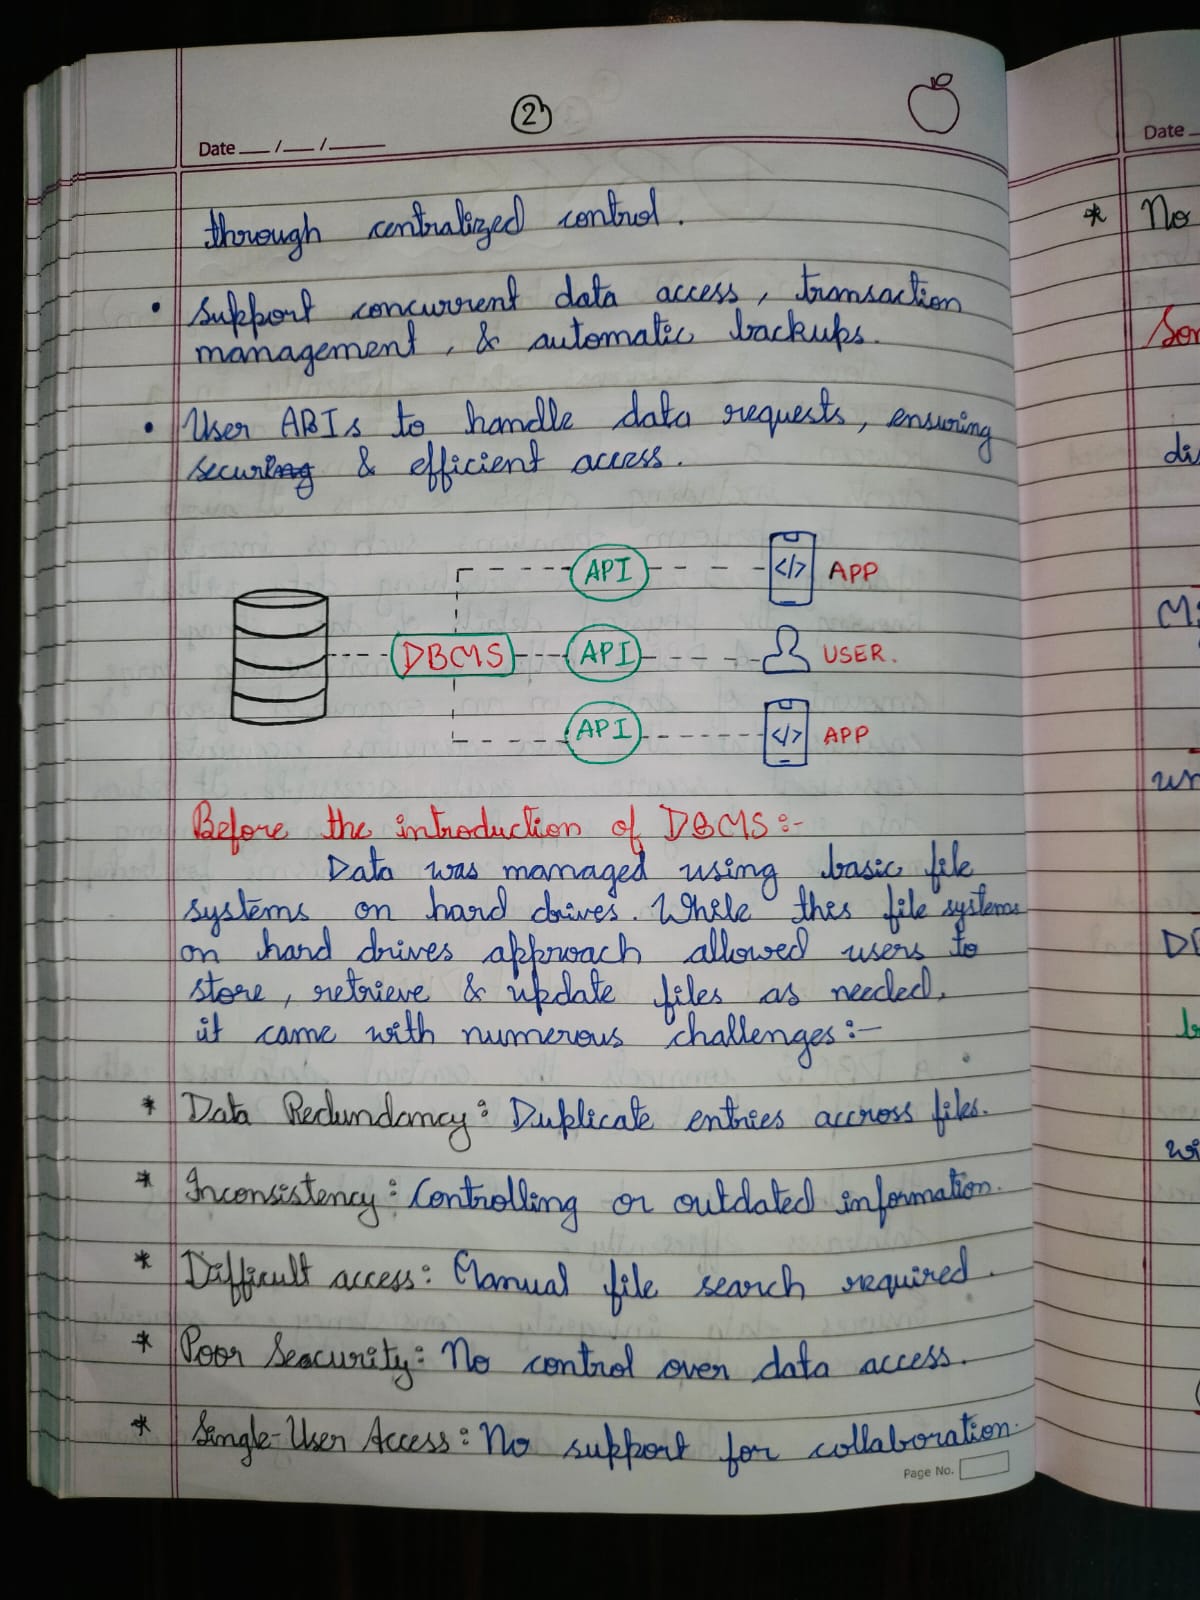 2
Date __/__/____
through centralized control.
• Support concurrent data access, transaction
management, & automatic backups.
• User APIs to handle data requests, ensuring
securing & efficient access.
API
</> APP
DBMS
API
USER.
API
</> APP
Before the introduction of DBMS:-
Data was managed using basic file
systems on hard drives. While this file systems
on hard drives approach allowed users to
store, retrieve & update files as needed,
it came with numerous challenges:-
* Data Redundancy: Duplicate entries accross files.
* Inconsistency: Controlling or outdated information.
* Difficult access: Manual file search required.
* Poor Seacurity: No control over data access.
* Single-User Access: No support for collaboration.
Page No.
Date
* No
di
un
wi